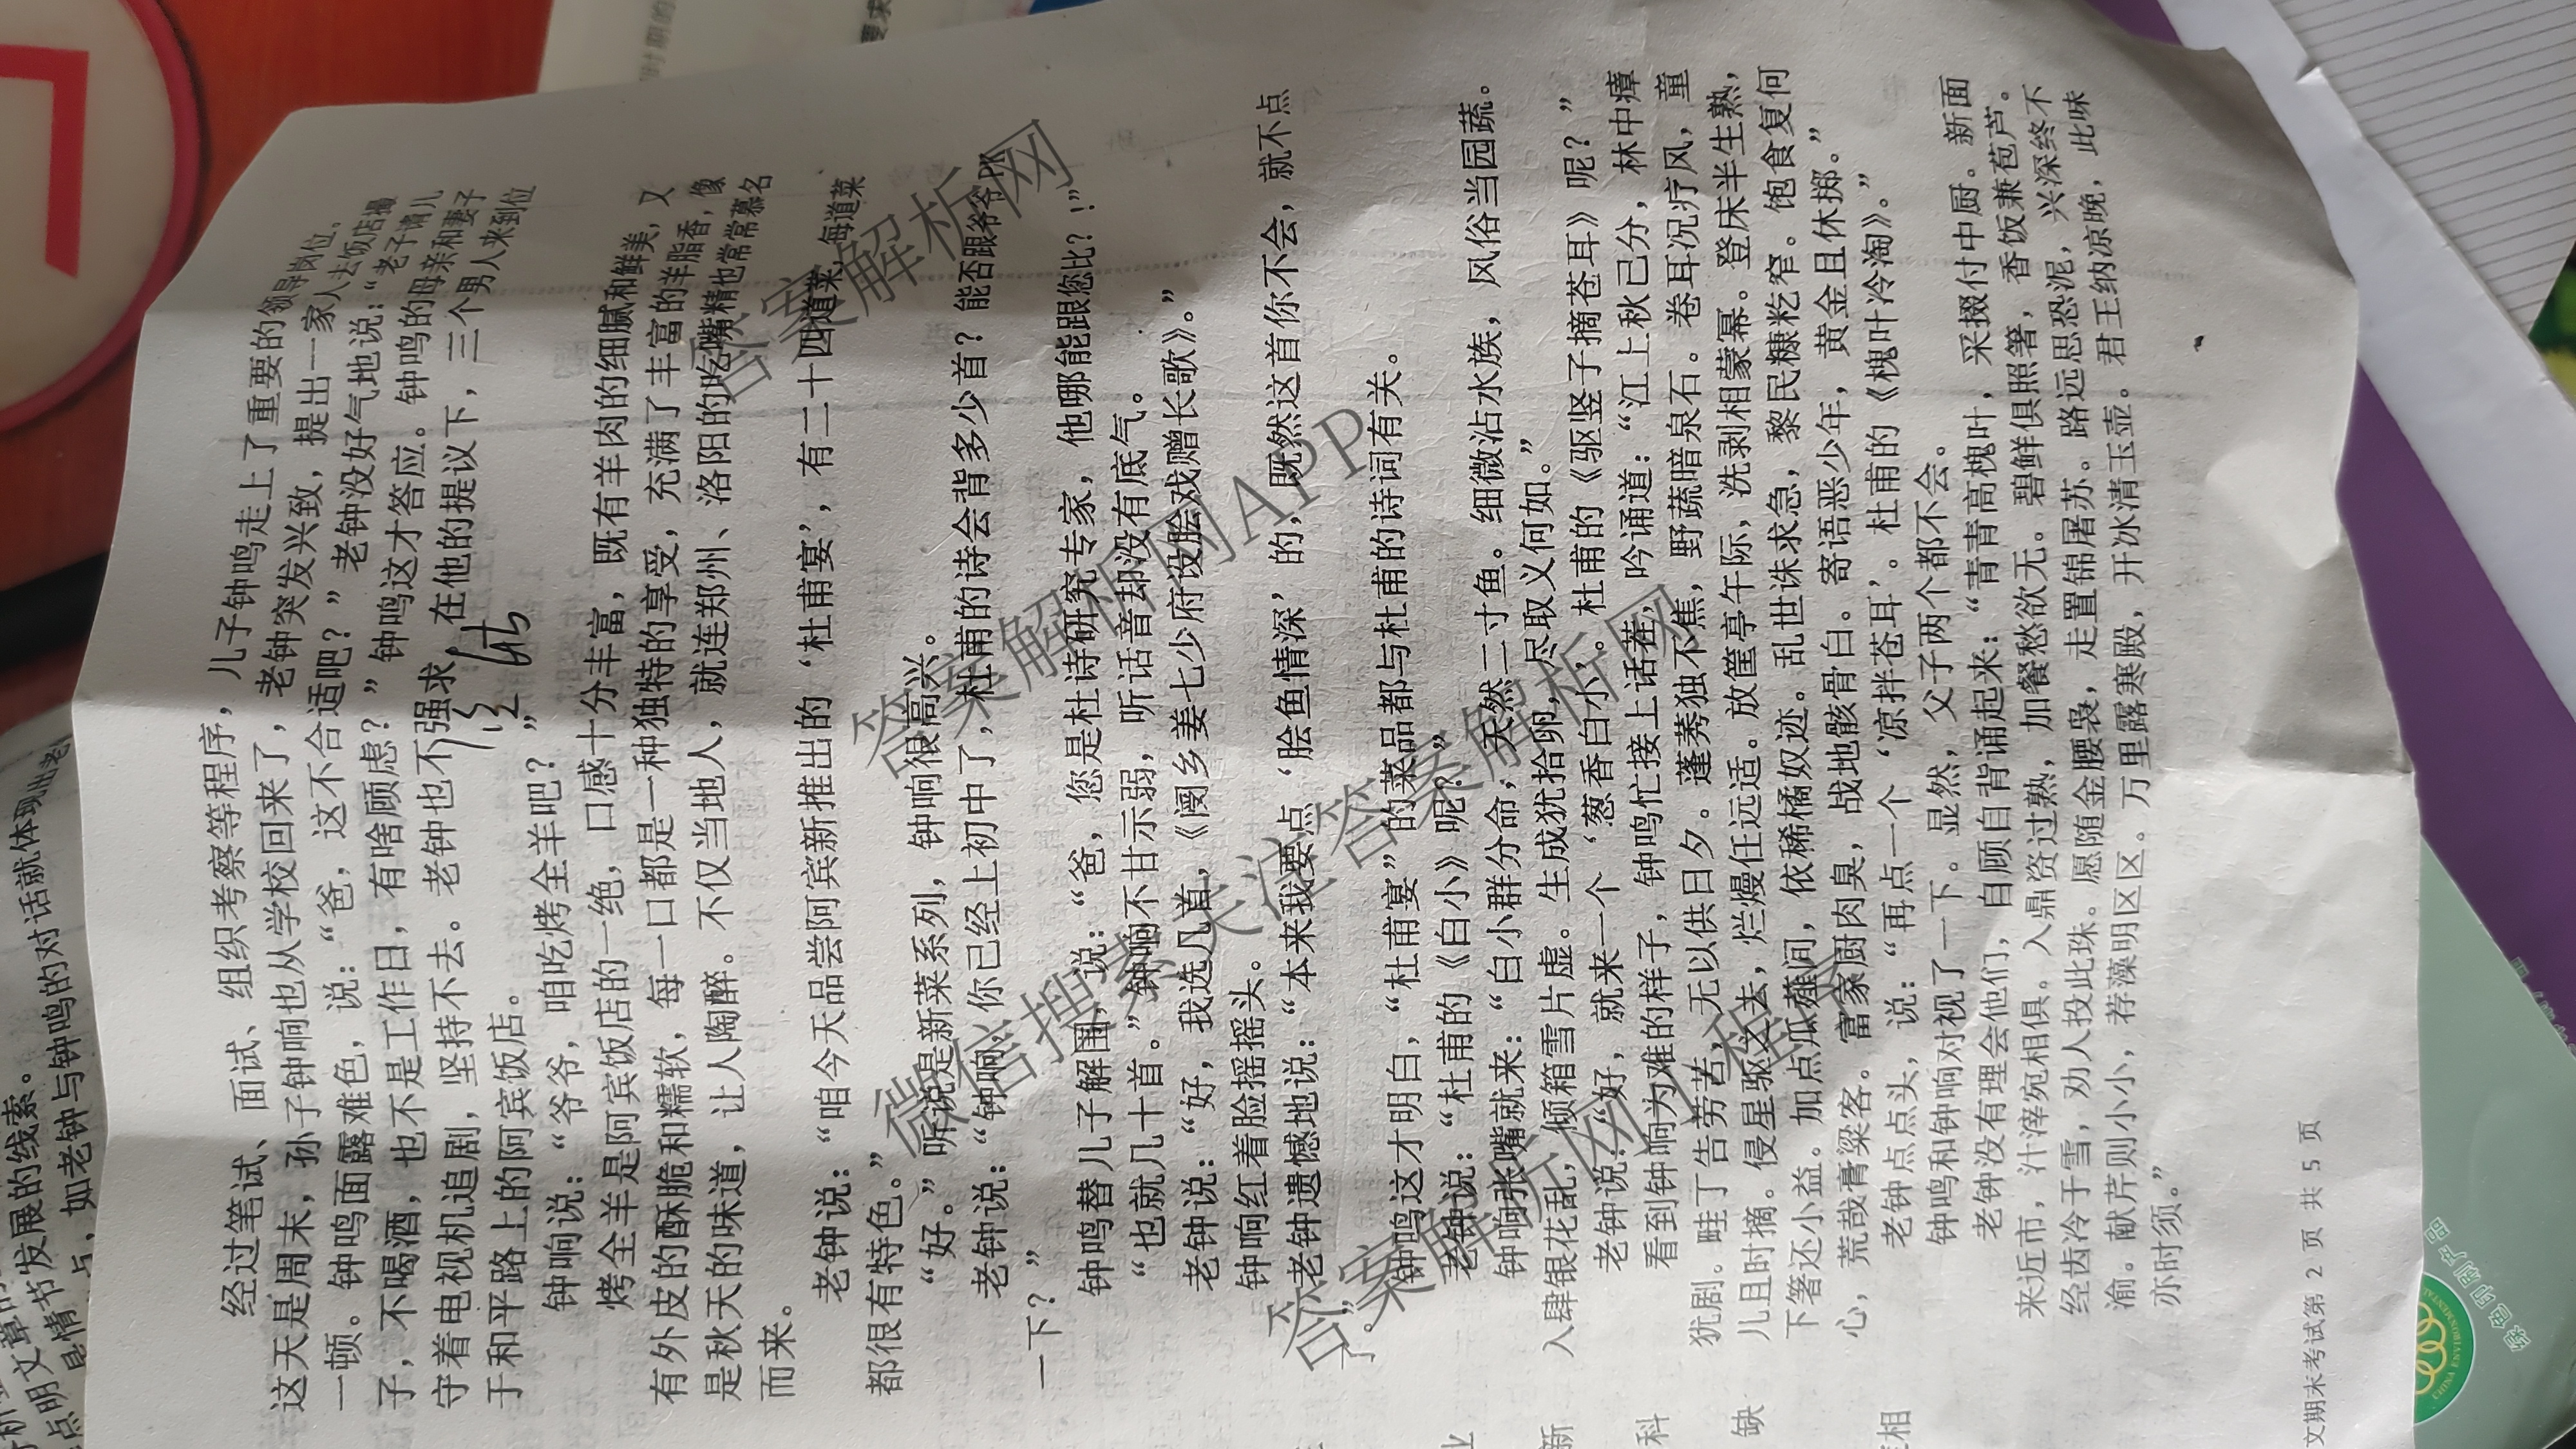 经过笔试、面试、组织考察等程序，儿子钟鸣走上了重要的领导岗位。
这天是周末，孙子钟响也从学校回来了，老钟突发兴致，提出一家人去饭店撮
一顿。钟鸣面露难色，说：“爸，这不合适吧？”老钟没好气地说：“老子请儿
子，不喝酒，也不是工作日，有啥顾虑？”钟鸣这才答应。钟鸣的母亲和妻子
守着电视机追剧，坚持不去。老钟也不强求，在他的提议下，三个男人来到位
于和平路上的阿宾饭店。
钟响说：“爷爷，咱吃烤全羊吧？”
烤全羊是阿宾饭店的一绝，口感十分丰富，既有羊肉的细腻和鲜美，又
有外皮的酥脆和糯软，每一口都是一种独特的享受，充满了丰富的羊脂香，像
是秋天的味道，让人陶醉。不仅当地人，就连郑州、洛阳的吃嘴精也常常慕名
而来。
老钟说：“咱今天品尝阿宾新推出的‘杜甫宴’，有二十四道菜，每道菜
都很有特色。”
“好。”听说是新菜系列，钟响很高兴。
老钟说：“钟响，你已经上初中了，杜甫的诗会背多少首？能否跟爷爷PK
一下？”
钟鸣替儿子解围，说：“爸，您是杜诗研究专家，他哪能跟您比？！”
“也就几十首。”钟响不甘示弱，听话音却没有底气。
老钟说：“好，我选几首，《阌乡姜七少府设脍戏赠长歌》。”
钟响红着脸摇摇头。
老钟遗憾地说：“本来我要点‘脍鱼情深’的，既然这首你不会，就不点
了。”
钟鸣这才明白，“杜甫宴”的菜品都与杜甫的诗词有关。
老钟说：“杜甫的《白小》呢？”
钟响张嘴就来：“白小群分命，天然二寸鱼。细微沾水族，风俗当园蔬。
入肆银花乱，倾箱雪片虚。生成犹拾卵，尽取义何如。”
老钟说：“好，就来一个‘葱香白小’。杜甫的《驱竖子摘苍耳》呢？”
看到钟响为难的样子，钟鸣忙接上话茬，吟诵道：“江上秋已分，林中瘴
犹剧。畦丁告劳苦，无以供日夕。蓬莠独不焦，野蔬暗泉石。卷耳况疗风，童
儿且时摘。侵星驱之去，烂熳任远适。放筐亭午际，洗剥相蒙幂。登床半生熟，
下箸还小益。加点瓜薤间，依稀橘奴迹。乱世诛求急，黎民糠籺窄。饱食复何
心，荒哉膏粱客。富家厨肉臭，战地骸骨白。寄语恶少年，黄金且休掷。”
老钟点点头，说：“再点一个‘凉拌苍耳’。杜甫的《槐叶冷淘》。”
钟鸣和钟响对视了一下。显然，父子两个都不会。
老钟没有理会他们，自顾自背诵起来：“青青高槐叶，采掇付中厨。新面
来近市，汁滓宛相俱。入鼎资过熟，加餐愁欲无。碧鲜俱照箸，香饭兼苞芦。
经齿冷于雪，劝人投此珠。愿随金腰袅，走置锦屠苏。路远思恐泥，兴深终不
渝。献芹则小小，荐藻明区区。万里露寒殿，开冰清玉壶。君王纳凉晚，此味
亦时须。”
文期末考试第 2 页 共 5 页
发展的线索。
如老钟与钟鸣的对话就体现出老
答案解析网
答案解析网APP
CHINA ENVIRONMENTAL
绿色印刷产品